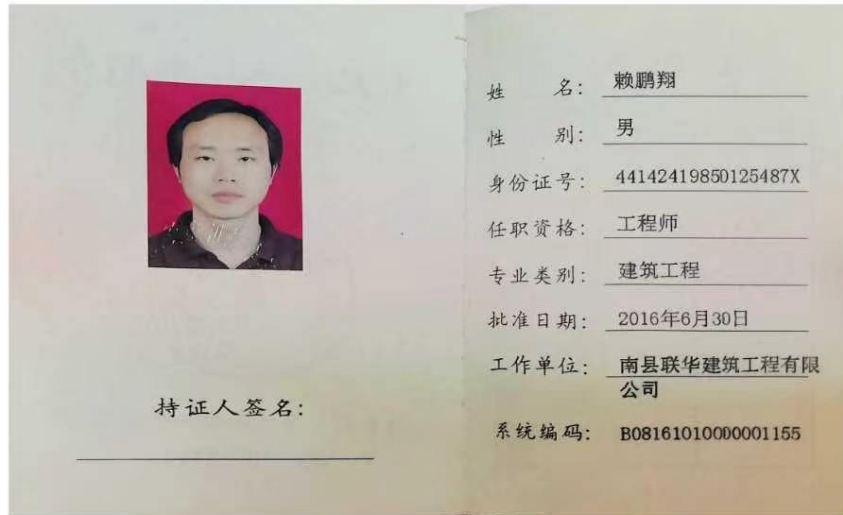 姓 名： 赖鹏翔
性 别： 男
身份证号： 44142419850125487X
任职资格： 工程师
专业类别： 建筑工程
批准日期： 2016年6月30日
工作单位： 南县联华建筑工程有限
公司
系统编码： B08161010000001155
持证人签名：